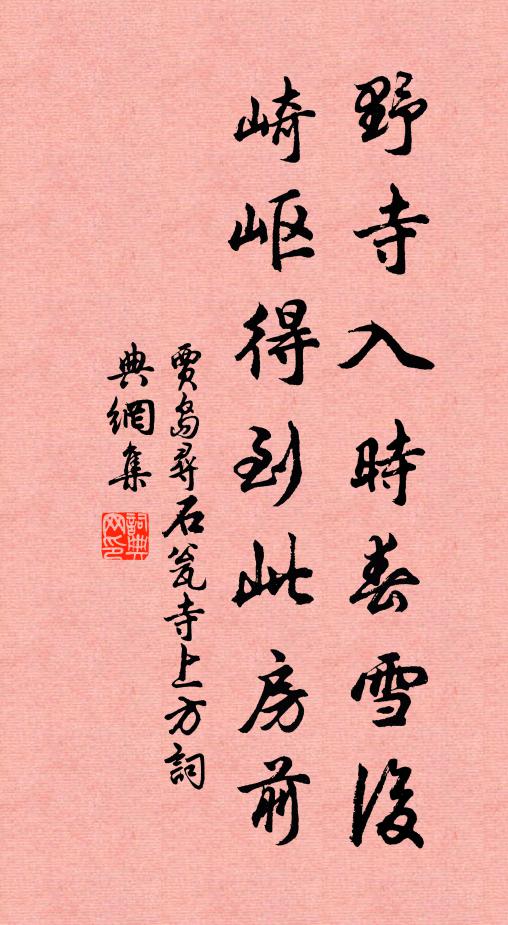 野寺入時春雪後
崎岖得到此房前
賈島尋石瓮寺上方詞
典網集
詞典网印